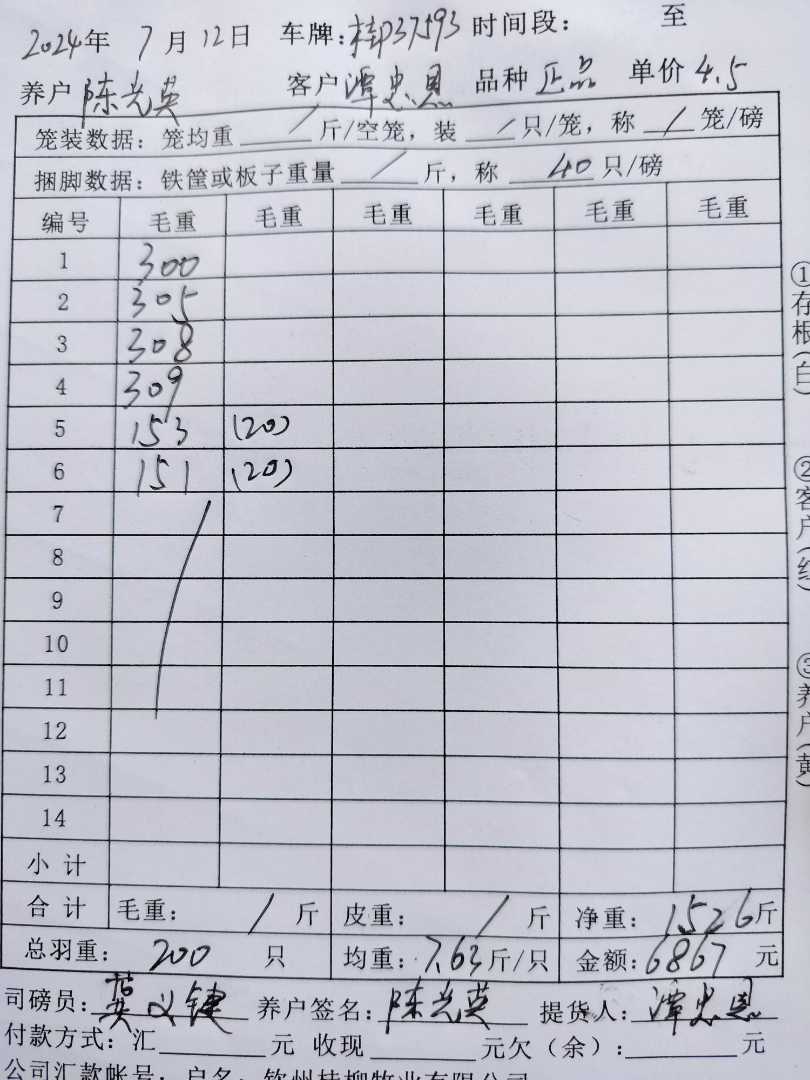 2024年 7月12日 车牌:桂P37593 时间段: 至
养户 陈光英 客户 潭忠恩 品种 正品 单价 4.5
笼装数据: 笼均重 / 斤/空笼, 装 / 只/笼, 称 / 笼/磅
捆脚数据: 铁筐或板子重量 / 斤, 称 40 只/磅
编号 毛重 毛重 毛重 毛重 毛重 毛重
1 300
2 305
3 308
4 309
5 153 (20)
6 151 (20)
7
8
9
10
11
12
13
14
小计
合计 毛重: / 斤 皮重: / 斤 净重: 1526斤
总羽重: 200 只 均重: 7.63斤/只 金额: 6867 元
司磅员: 黄义键 养户签名: 陈光英 提货人: 潭忠恩
付款方式: 汇 元 收现 元欠(余): 元
公司汇款帐号: 户名: 钦州桂柳牧业有限公司
①存根(白)
②客户(红)
③养户(黄)